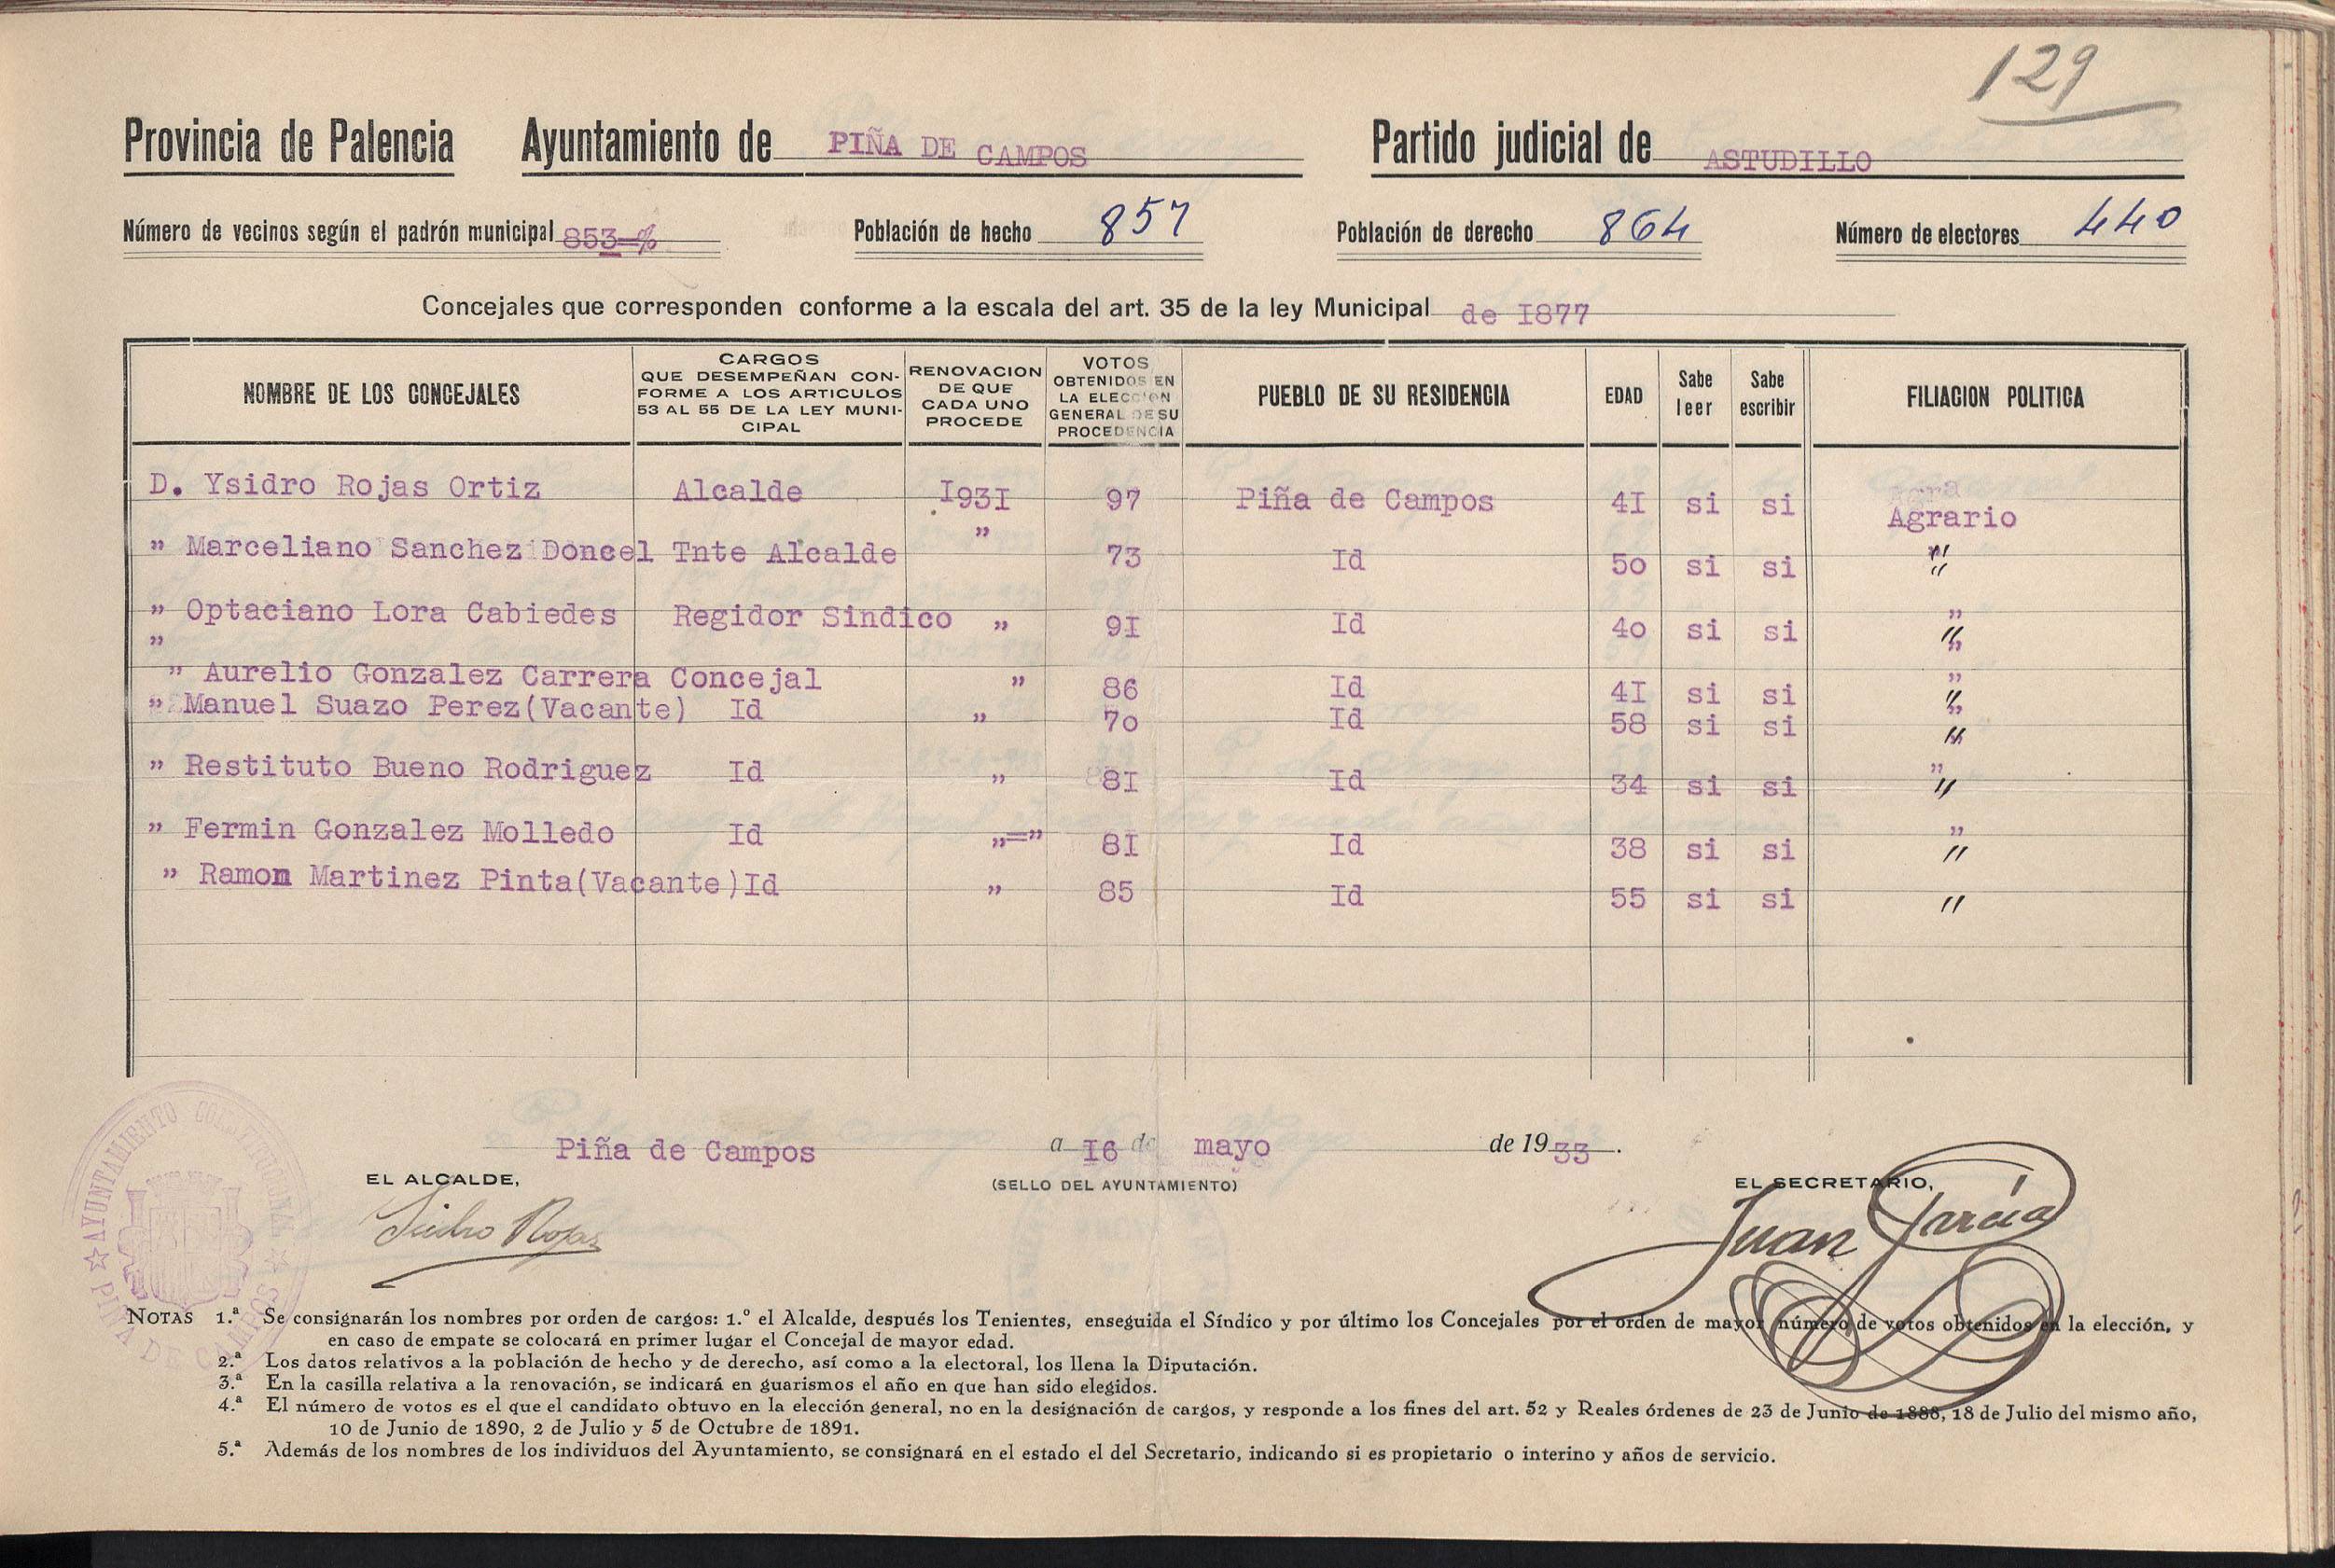 129
Provincia de Palencia Ayuntamiento de PIÑA DE CAMPOS Partido judicial de ASTUDILLO
Número de vecinos según el padrón municipal 853=% Población de hecho 857 Población de derecho 864 Número de electores 440
Concejales que corresponden conforme a la escala del art. 35 de la ley Municipal de I877
NOMBRE DE LOS CONCEJALES
CARGOS
QUE DESEMPEÑAN CON-
FORME A LOS ARTICULOS
53 AL 55 DE LA LEY MUNI-
CIPAL
RENOVACION
DE QUE
CADA UNO
PROCEDE
VOTOS
OBTENIDOS EN
LA ELECCION
GENERAL DE SU
PROCEDENCIA
PUEBLO DE SU RESIDENCIA
EDAD
Sabe
leer
Sabe
escribir
FILIACION POLITICA
D. Ysidro Rojas Ortiz Alcalde I93I 97 Piña de Campos 4I si si Agrario
" Marceliano Sanchez Doncel Tnte Alcalde " 73 Id 50 si si "
" Optaciano Lora Cabiedes Regidor Sindico " 9I Id 40 si si "
"
" Aurelio Gonzalez Carrera Concejal " 86 Id 4I si si "
" Manuel Suazo Perez(Vacante) Id " 70 Id 58 si si "
" Restituto Bueno Rodriguez Id " 8I Id 34 si si "
" Fermin Gonzalez Molledo Id "=" 8I Id 38 si si "
" Ramon Martinez Pinta(Vacante)Id " 85 Id 55 si si "
Piña de Campos a I6 de mayo de 1933.
EL ALCALDE, (SELLO DEL AYUNTAMIENTO) EL SECRETARIO,
Isidro Rojas Juan García
AYUNTAMIENTO CONSTITUCIONAL
PIÑA DE CAMPOS
NOTAS 1.ª Se consignarán los nombres por orden de cargos: 1.º el Alcalde, después los Tenientes, enseguida el Síndico y por último los Concejales por el orden de mayor número de votos obtenidos en la elección, y
en caso de empate se colocará en primer lugar el Concejal de mayor edad.
2.ª Los datos relativos a la población de hecho y de derecho, así como a la electoral, los llena la Diputación.
3.ª En la casilla relativa a la renovación, se indicará en guarismos el año en que han sido elegidos.
4.ª El número de votos es el que el candidato obtuvo en la elección general, no en la designación de cargos, y responde a los fines del art. 52 y Reales órdenes de 23 de Junio de 1888, 18 de Julio del mismo año,
10 de Junio de 1890, 2 de Julio y 5 de Octubre de 1891.
5.ª Además de los nombres de los individuos del Ayuntamiento, se consignará en el estado el del Secretario, indicando si es propietario o interino y años de servicio.